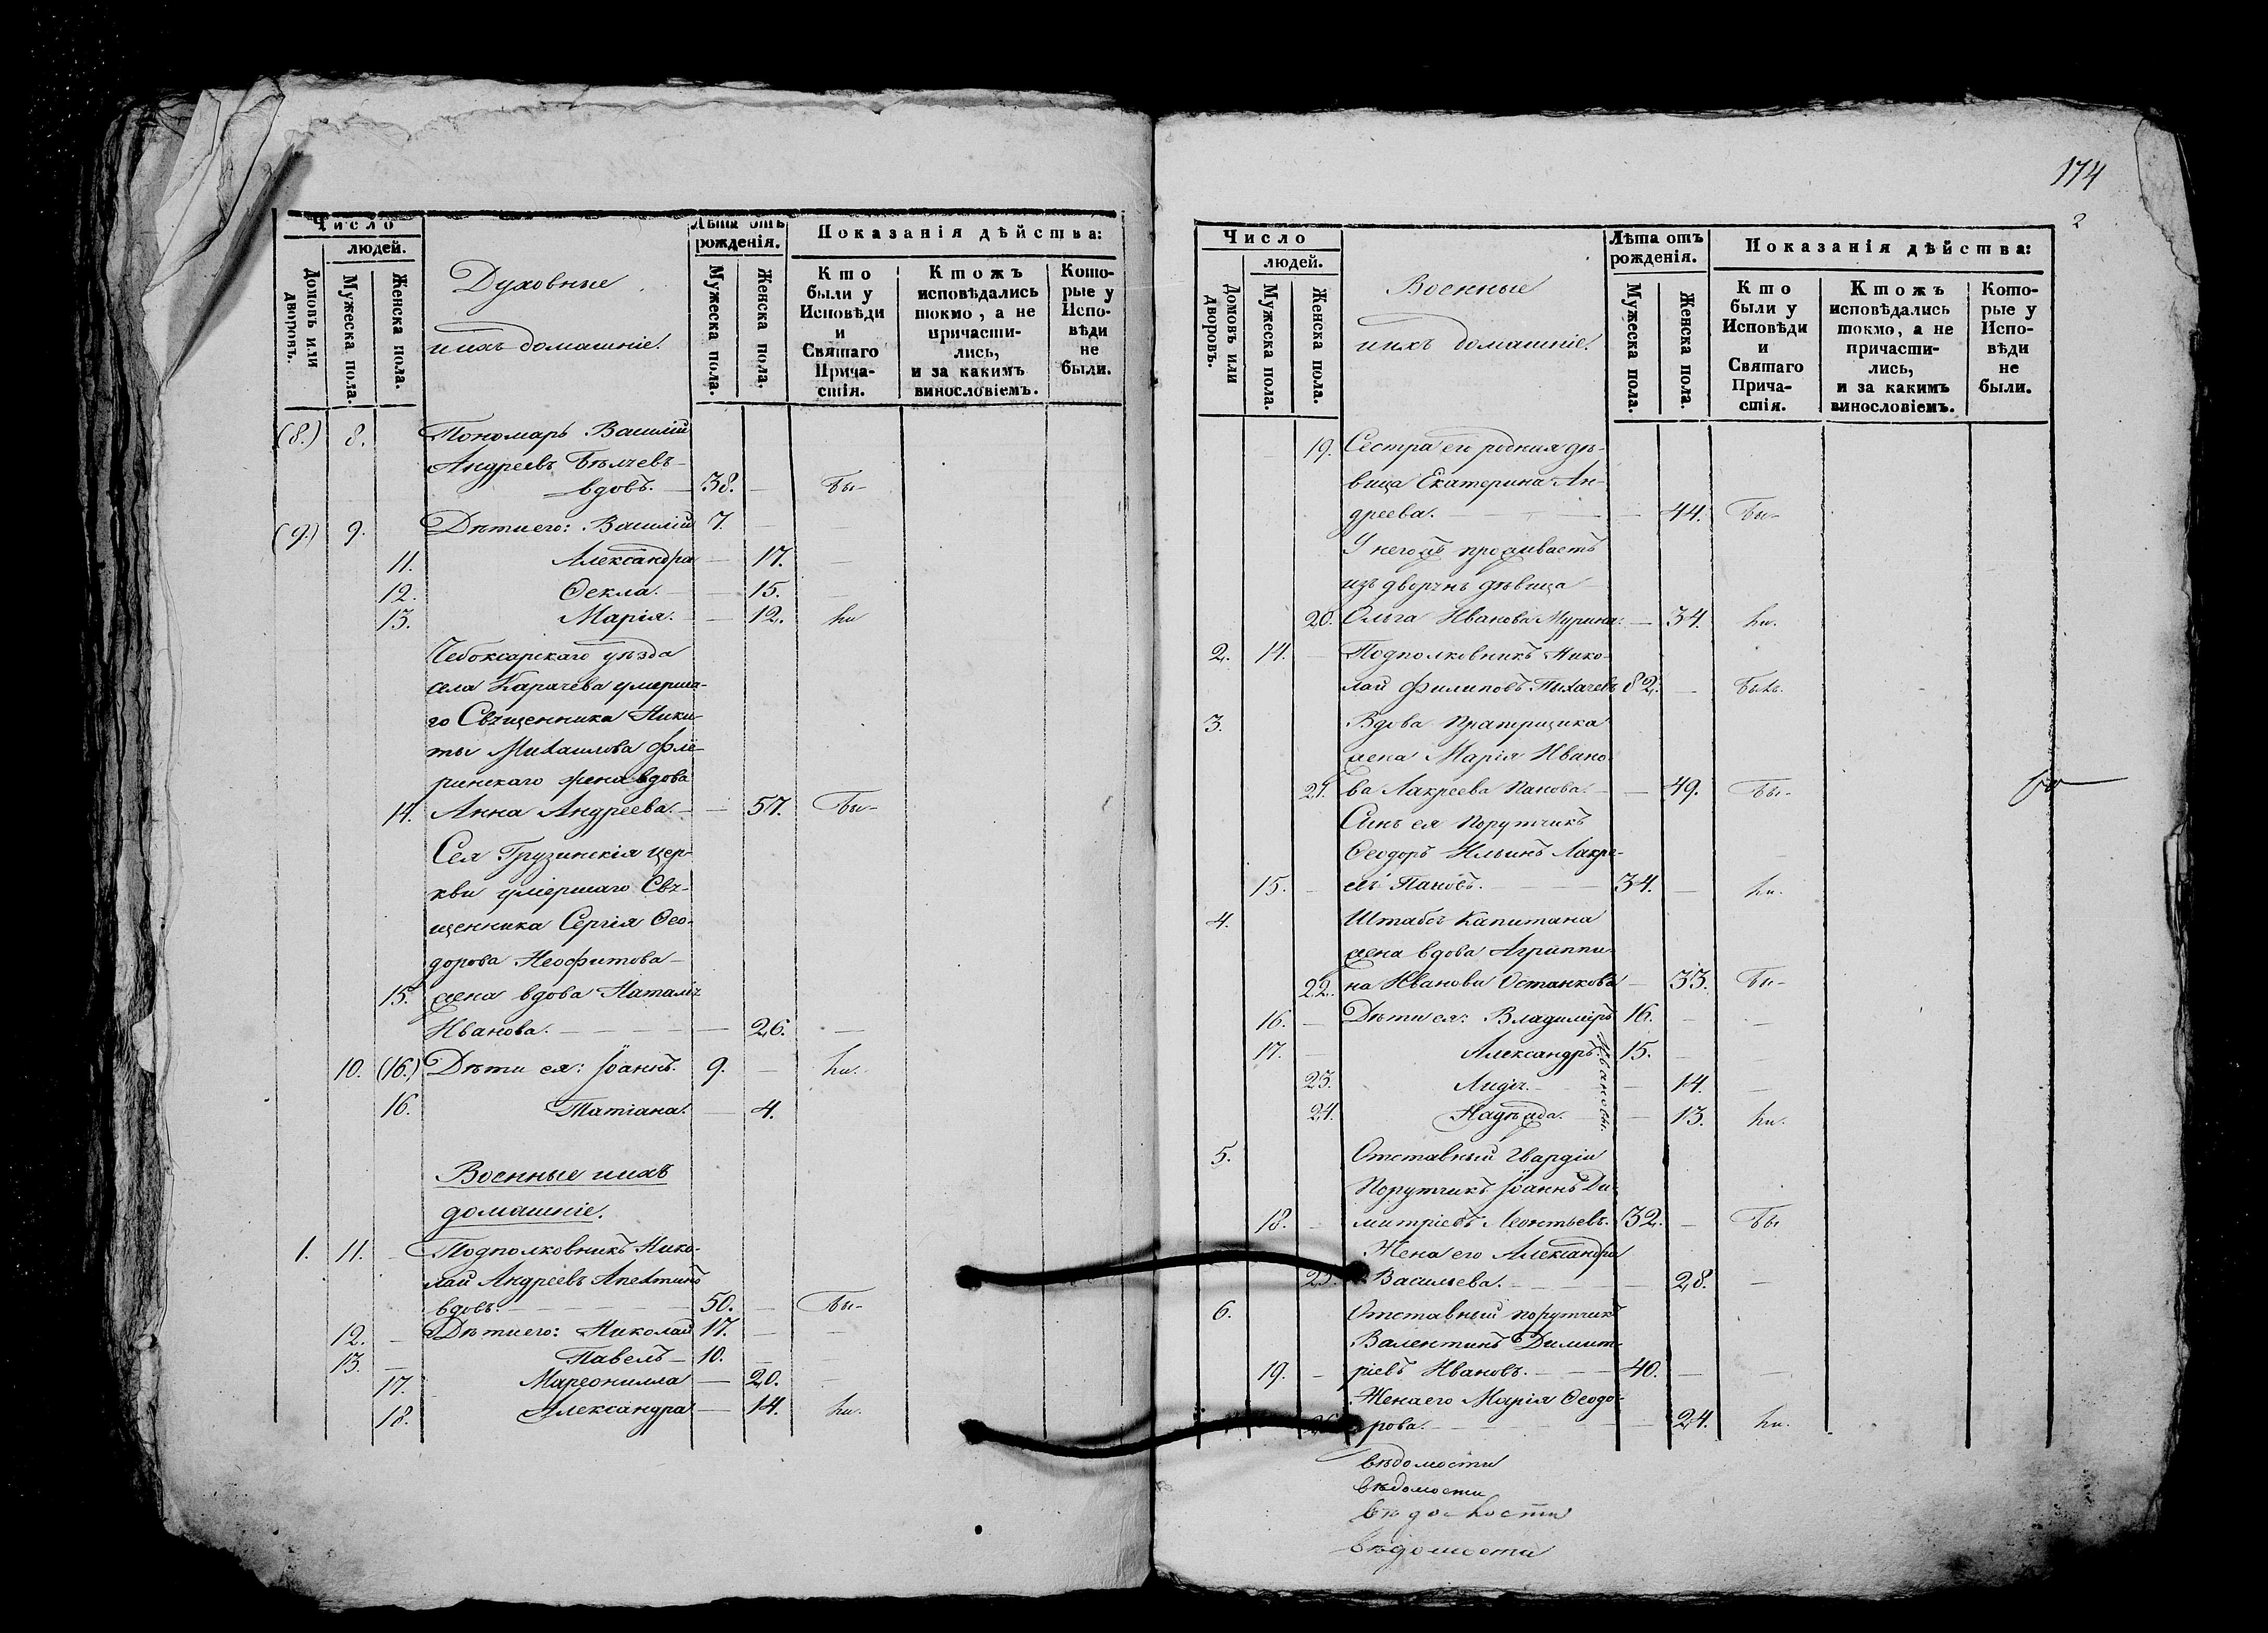 Число
людей.
Домовъ или дворовъ.
Мужеска пола.
Женска пола.
Духовные
и ихъ домашніе.
Лѣта отъ рожденія.
Мужеска пола.
Женска пола.
Показанія дѣйства:
Кто были у Исповѣди и Святаго Причастія.
Ктожъ исповѣдались токмо, а не причастились, и за какимъ винословіемъ.
Которые у Исповѣди не были.
(8.) 8. Пономарь Василій
Андреевъ Бѣлчевъ
вдовъ. — 38. — бы-
(9.) 9. Дѣти его: Василій 7. — —
11. Александра — 17. —
12. Ѳекла. — 15. —
13. Марія. — 12. ли
Чебоксарскаго уѣзда
села Карачева умерша-
го Священника Ники-
ты Михаилова
жена вдова
14. Анна Андреева. — 57. бы-
Сея Грузинскія цер-
кви умершаго Свя-
щенника Сергія Ѳео-
дорова Неофитова
15. жена вдова Наталія
Иванова. — 26. —
10. (16.) Дѣти ея: Іоаннъ. 9. — ли.
16. Татіана. — 4.
Военные и ихъ
домашніе.
1. 11. Подполковникъ Нико-
лай Андреевъ Апехтинъ
вдовъ. — 50. — бы-
12. Дѣти его: Николай 17. — —
13. Павелъ — 10. — —
17. Маріонилла — 20. —
18. Александра — 14. ли.
174
2
Число
людей.
Домовъ или дворовъ.
Мужеска пола.
Женска пола.
Военные
и ихъ домашніе.
Лѣта отъ рожденія.
Мужеска пола.
Женска пола.
Показанія дѣйства:
Кто были у Исповѣди и Святаго Причастія.
Ктожъ исповѣдались токмо, а не причастились, и за какимъ винословіемъ.
Которые у Исповѣди не были.
19. Сестра его родная дѣ-
вица Екатерина Ан-
дреева. — 44. бы-
У него жъ проживаетъ
изъ дворянъ дѣвица
20. Ольга Иванова Мурина. — 34. ли.
2. 14. Подполковникъ Нико-
лай Филиповъ Пыхачевъ 82. — былъ.
3. Вдова Прапорщика
жена Марія Ивано-
21. ва Лакреева Панова. — 49. бы-
Сынъ ея Порутчикъ
Ѳеодоръ Ильинъ Лакре-
15. евъ Пановъ. — 34. — ли.
4. Штабсъ Капитана
жена вдова Агриппи-
22. на Иванова Останкова — 33. бы-
16. Дѣти ея: Владиміръ 16. — —
17. Александръ. 15. — —
23. Лидія. — 14. —
24. Надѣжда. — 13. ли.
Ивановы.
5. Отставный Гвардіи
Порутчикъ Іоаннъ Ди-
18. митріевъ Леонтьевъ. 32. — бы
Жена его Александра
25. Васильева. — 28. —
6. Отставный порутчикъ
Валентинъ Димит-
19. ріевъ Ивановъ. — 40. — —
Жена его Марія Ѳеодо-
26. рова. — 24. ли.
вѣдомости
вѣдомости
вѣдомости
вѣдомости